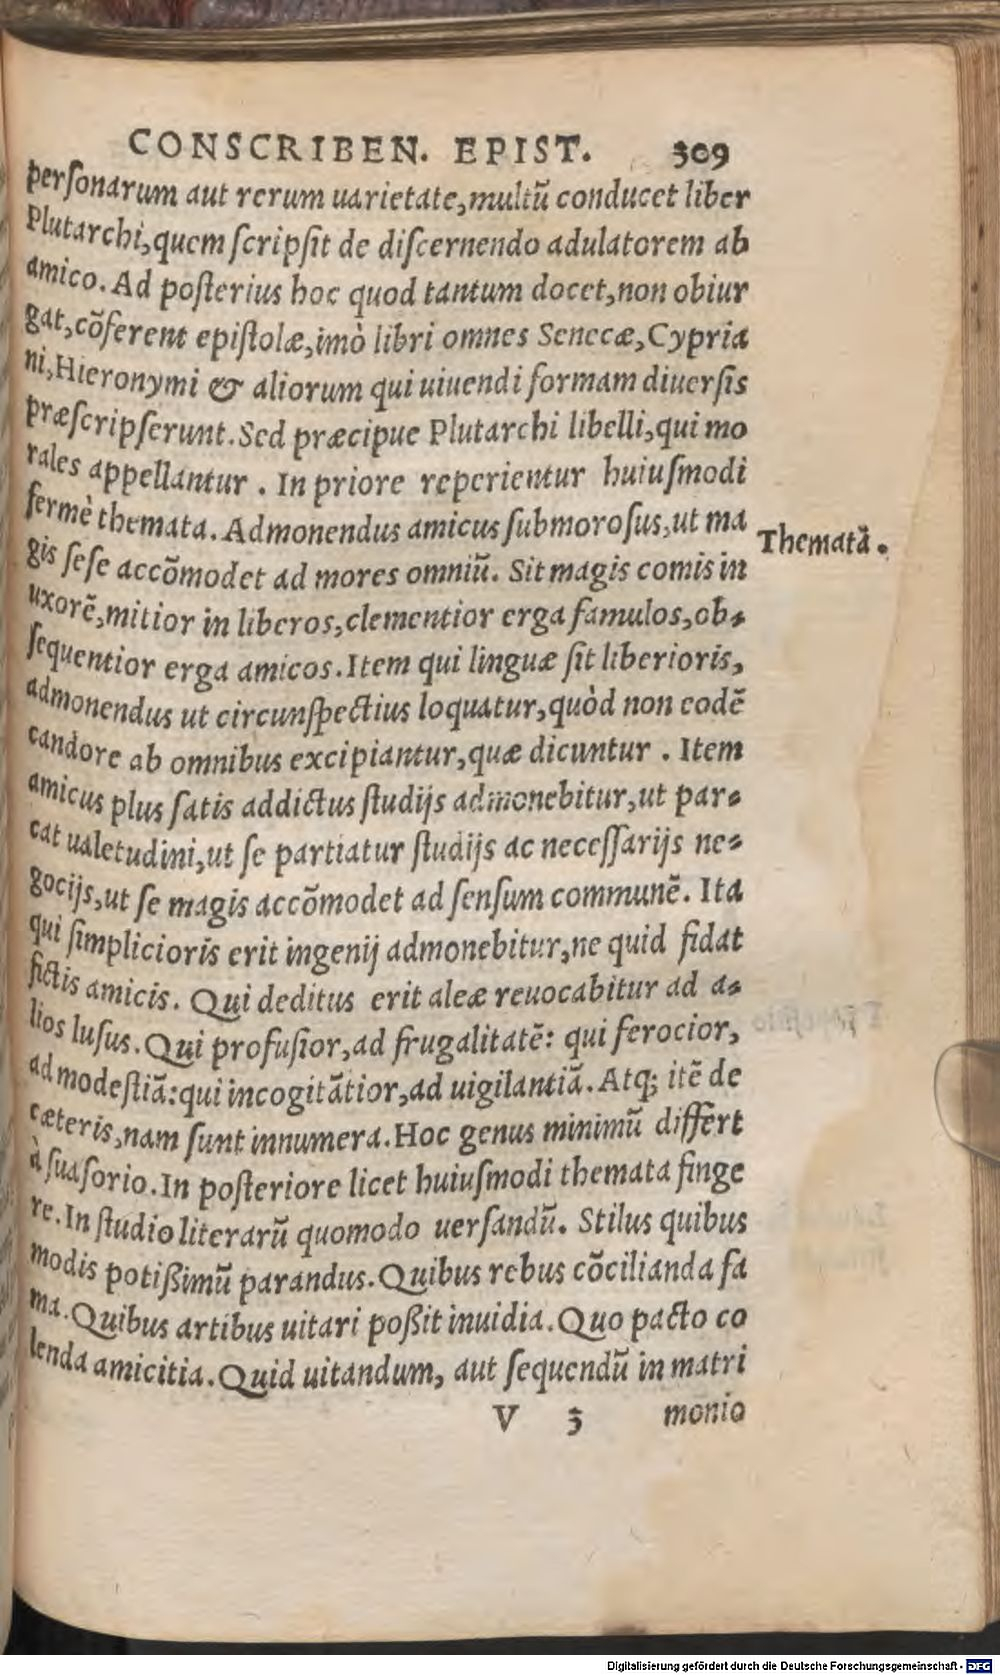 CONSCRIBEN. EPIST. 309
perſonarum aut rerum uarietate, multũ conducet liber
Plutarchi, quem ſcripſit de diſcernendo adulatorem ab
amico. Ad poſterius hoc quod tantum docet, non obiur
gat, cõferent epiſtolæ, imò libri omnes Senecæ, Cypria
ni, Hieronymi & aliorum qui uiuendi formam diuerſis
præſcripſerunt. Sed præcipue Plutarchi libelli, qui mo
rales appellantur . In priore reperientur huiuſmodi
fermè themata. Admonendus amicus ſubmoroſus, ut ma
Themata.
gis ſeſe accõmodet ad mores omniũ. Sit magis comis in
uxorẽ, mitior in liberos, clementior erga famulos, ob-
ſequentior erga amicos. Item qui linguæ ſit liberioris,
admonendus ut circunſpectius loquatur, quòd non eodẽ
candore ab omnibus excipiantur, quæ dicuntur . Item
amicus plus ſatis addictus ſtudijs admonebitur, ut par-
cat ualetudini, ut ſe partiatur ſtudijs ac neceſſarijs ne-
gocijs, ut ſe magis accõmodet ad ſenſum communẽ. Ita
qui ſimplicioris erit ingenij admonebitur, ne quid fidat
fictis amicis. Qui deditus erit aleæ reuocabitur ad a-
lios luſus. Qui profuſior, ad frugalitatẽ: qui ferocior,
ad modeſtiã: qui incogitãtior, ad uigilantiã. Atq; itẽ de
cæteris, nam ſunt innumera. Hoc genus minimũ differt
à ſuaſorio. In poſteriore licet huiuſmodi themata finge
re. In ſtudio literarũ quomodo uerſandũ. Stilus quibus
modis potißimũ parandus. Quibus rebus cõcilianda fa
ma. Quibus artibus uitari poßit inuidia. Quo pacto co
lenda amicitia. Quid uitandum, aut ſequendũ in matri
V 3 monio
Digitalisierung gefördert durch die Deutsche Forschungsgemeinschaft - DFG